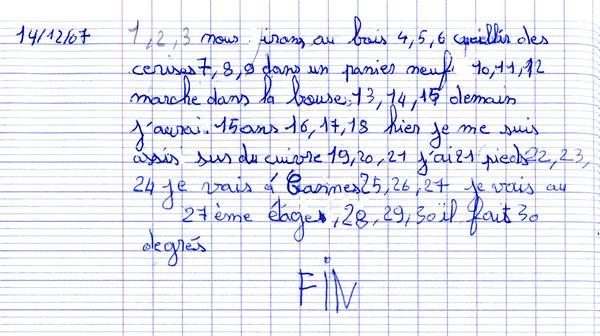 14/12/67 1, 2, 3 nous irons au bois 4, 5, 6 cueillir des
cerises 7, 8, 9 dans un panier neuf 10, 11, 12
marche dans la bouse, 13, 14, 15 demain
j'aurai 15 ans 16, 17, 18 hier je me suis
assis sur du cuivre 19, 20, 21 j'ai 21 pieds 22, 23,
24 je vais à Cannes 25, 26, 27 je vais au
27 ème étages, 28, 29, 30 il fait 30
degrés
FIN